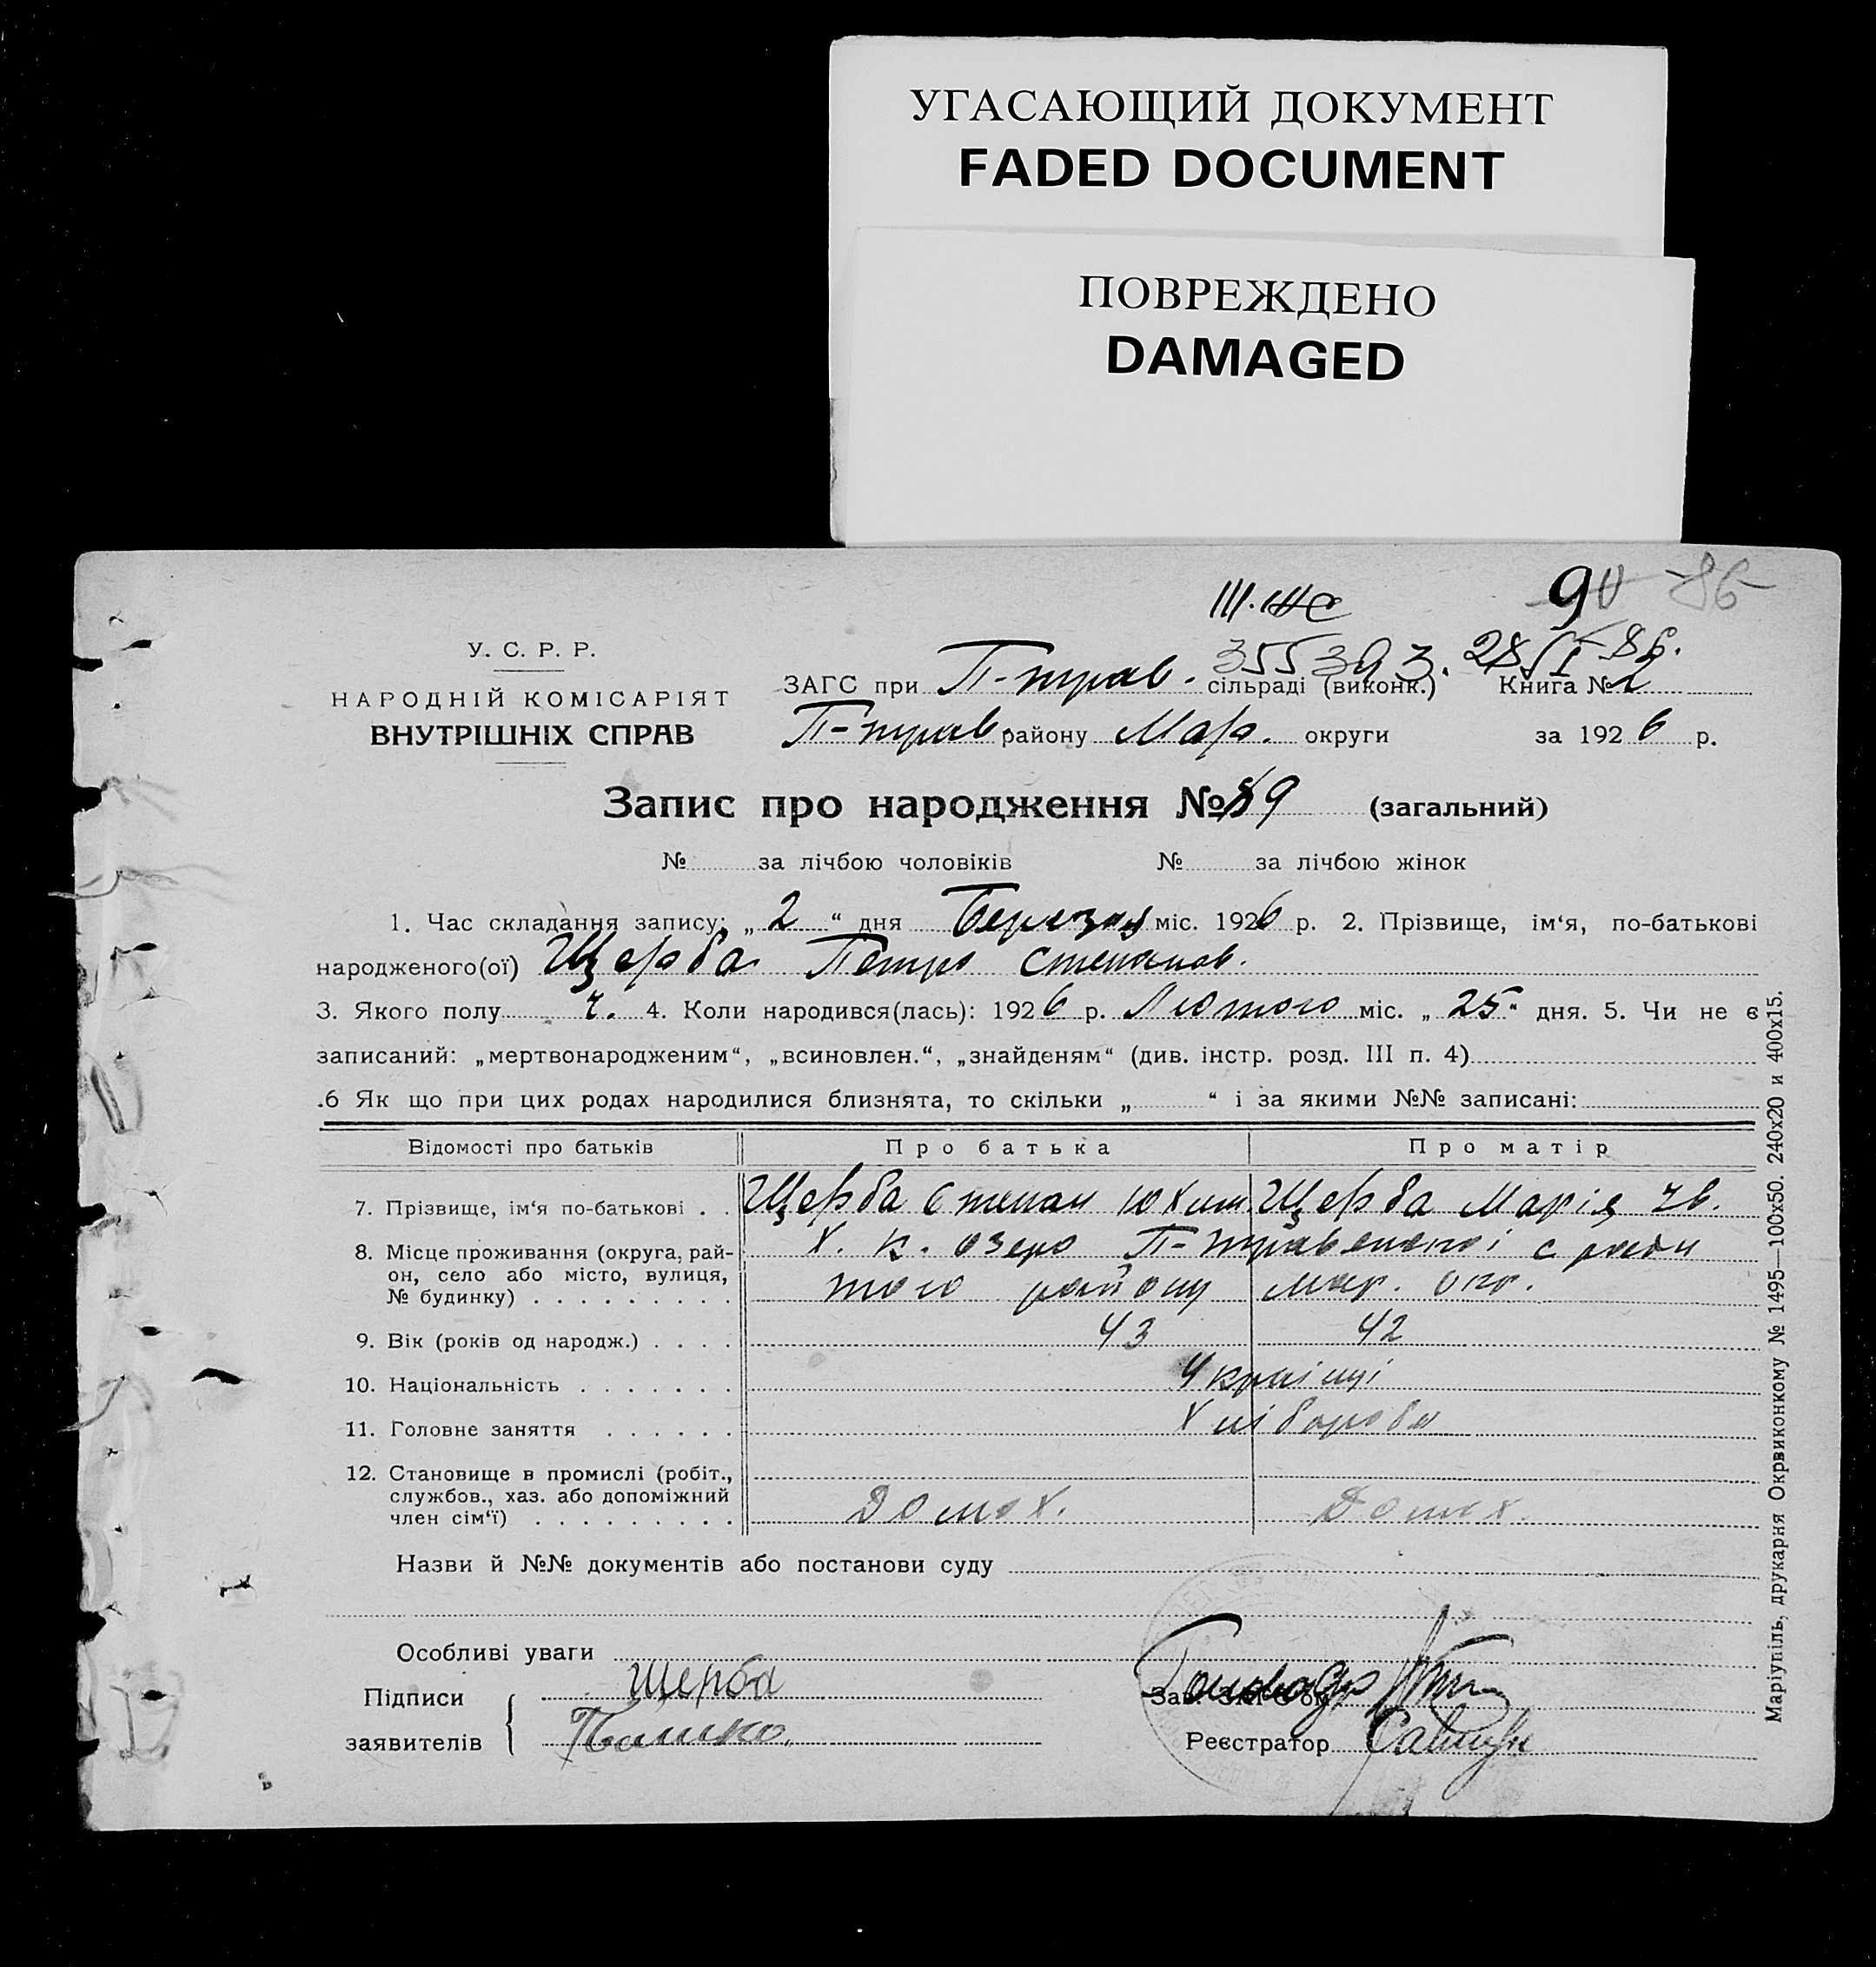 УГАСАЮЩИЙ ДОКУМЕНТ
FADED DOCUMENT
ПОВРЕЖДЕНО
DAMAGED
90 86
355393. 28
У. С. Р. Р.
НАРОДНІЙ КОМІСАРІЯТ
ВНУТРІШНІХ СПРАВ
ЗАГС при П-трав. сільраді (виконк.) Книга № 2
П-трав району Мар. округи за 1926 р.
Запис про народження № 89 (загальний)
№ за лічбою чоловіків № за лічбою жінок
1. Час складання запису: „ 2 “ дня Березня міс. 1926 р. 2. Прізвище, ім‘я, по-батькові
народженого(ої) Щерба Петро Степанов.
3. Якого полу ч. 4. Коли народився(лась): 1926 р. Лютого міс. „ 25 “ дня. 5. Чи не є
записаний: „мертвонародженим“, „всиновлен.“, „знайденям“ (див. інстр. розд. III п. 4)
.6 Як що при цих родах народилися близнята, то скільки „ “ і за якими №№ записані:
Відомості про батьків Про батька Про матір
7. Прізвище, ім‘я по-батькові . . Щерба Степан Юхим. Щерба Марія
8. Місце проживання (округа, рай- Х. К. озеро П-травенької с ради
он, село або місто, вулиця, того району Мар. окр.
№ будинку) . . . . . . . . .
9. Вік (років од народж.) . . . . 43 42
10. Національність . . . . . . . Україці
11. Головне заняття . . . . . . Хлібороби
12. Становище в промислі (робіт.,
службов., хаз. або допоміжний
член сім‘ї) . . . . . . . . . Домох. Домох.
Назви й №№ документів або постанови суду
Особливі уваги
Підписи Щерба
заявителів
Реєстратор
Маріупіль, друкарня Окрвиконкому № 1495—100x50. 240x20 и 400x15.